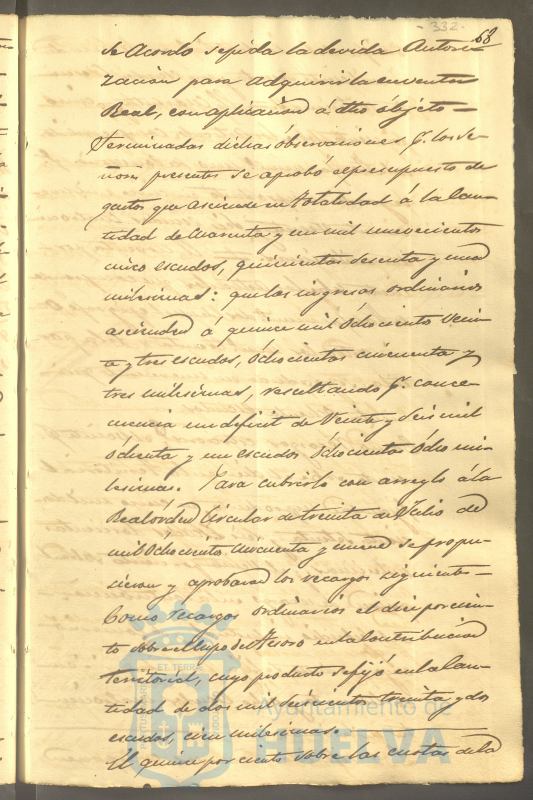 332.
68
Se Acordó se pida la devida Autori-
zacion para adquirir la en venta
Real, con aplicacion á dho objeto=
Terminadas dichas observaciones pr. los Se-
ñores presentes se aprobó el presupuesto de
gastos que asciende en totalidad á la Can-
tidad de Cuarenta y un mil nuevecientos
cinco escudos, quinientas sesenta y una
milesimas: que los ingresos ordinarios
ascienden á quince mil Ochociento Vein-
ta y tres escudos, Ochocientas cincuenta y
tres milesimas, resultando pr. conce-
cuencia un deficit de Veinte y Seis mil
Ochenta y un escudos Ochocientas Ocho mi-
lesimas. Para cubrirlo con arreglo á la
Real órden Circular de treinta de Julio de
mil Ochociento cincuenta y nueve se propu-
sieron y aprobaron los recargos siguientes=
Como recargos ordinarios el diez por cien-
to sobre el cupo del Tesoro en la Contribucion
territorial, cuyo producto se fijó en la Can-
tidad de dos mil Seiscientos treinta y dos
escudos, cien milesimas.
El quince por ciento sobre las cuotas de la
Ayuntamiento de
HUELVA